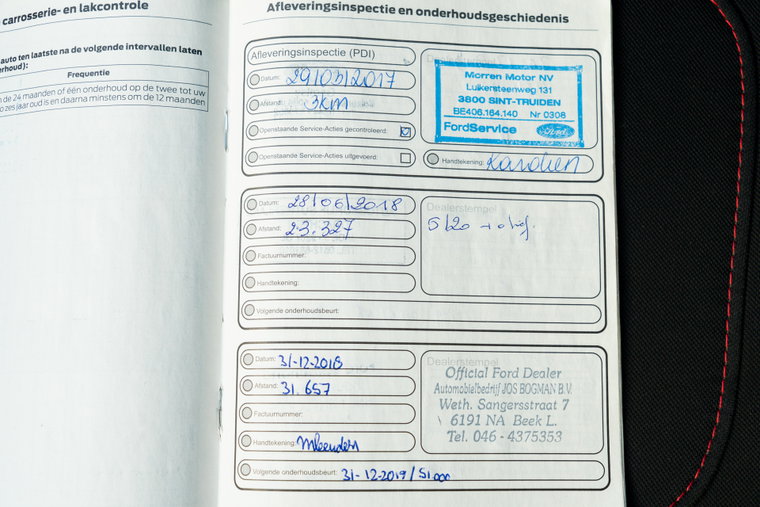 carrosserie- en lakcontrole
auto ten laatste na de volgende intervallen laten
erhoud):
Frequentie
de 24 maanden of één onderhoud op de twee tot uw
zes jaar oud is en daarna minstens om de 12 maanden
Afleveringsinspectie en onderhoudsgeschiedenis
Afleveringsinspectie (PDI)
Datum: 29/03/2017
Afstand: 3km
Openstaande Service-Acties gecontroleerd:
Openstaande Service-Acties uitgevoerd:
Dealerstempel
Morren Motor NV
Luikersteenweg 131
3800 SINT-TRUIDEN
BE406.164.140 Nr 0308
FordService Ford
Handtekening:
Datum: 28/06/2018
Afstand: 23.327
Factuurnummer:
Handtekening:
Volgende onderhoudsbeurt:
Dealerstempel
5/20
Datum: 31-12-2018
Afstand: 31.657
Factuurnummer:
Handtekening:
Volgende onderhoudsbeurt: 31-12-2019/51.000
Dealerstempel
Official Ford Dealer
Automobielbedrijf JOS BOGMAN B.V.
Weth. Sangersstraat 7
6191 NA Beek L.
Tel. 046 - 4375353